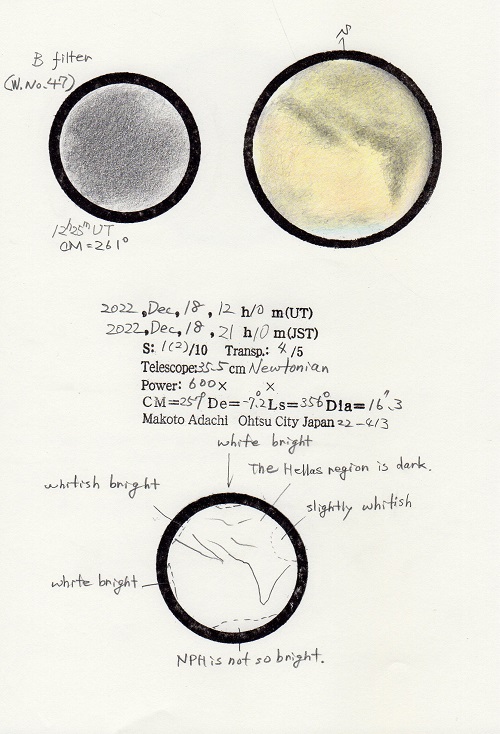 S
B filter
(W.No.47)
12h25m UT
CM=261°
2022,Dec,18,12 h10 m(UT)
2022,Dec,18,21 h10 m(JST)
S: 1(2)/10 Transp.: 4/5
Telescope:35.5 cm Newtonian
Power: 600× ×
CM=257° De=-7.2° Ls=356° Dia=16".3
Makoto Adachi Ohtsu City Japan 22-413
white bright
The Hellas region is dark.
whitish bright
slightly whitish
white bright
NPH is not so bright.